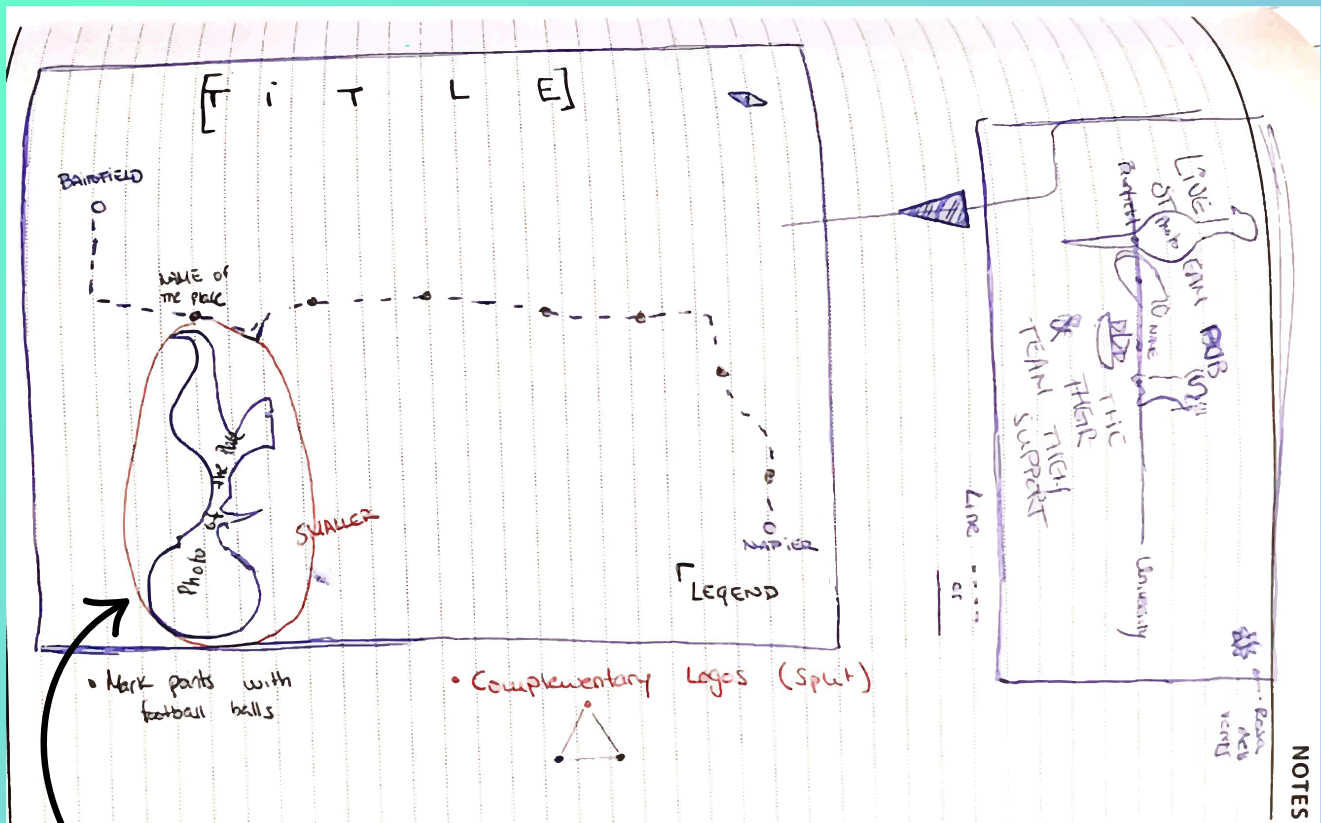 [T i T L E]
BAIRDFIELD
NAME OF
THE PLACE
Photo of the place
SMALLER
NAPIER
LEGEND
• Mark points with
football balls
• Complementary Logos (Split)
LINE
OF
photo
PUB
TO
NINE
THE
& THEIR
TEAM THEIR
SUPPORT
University
Line
or
NOTES